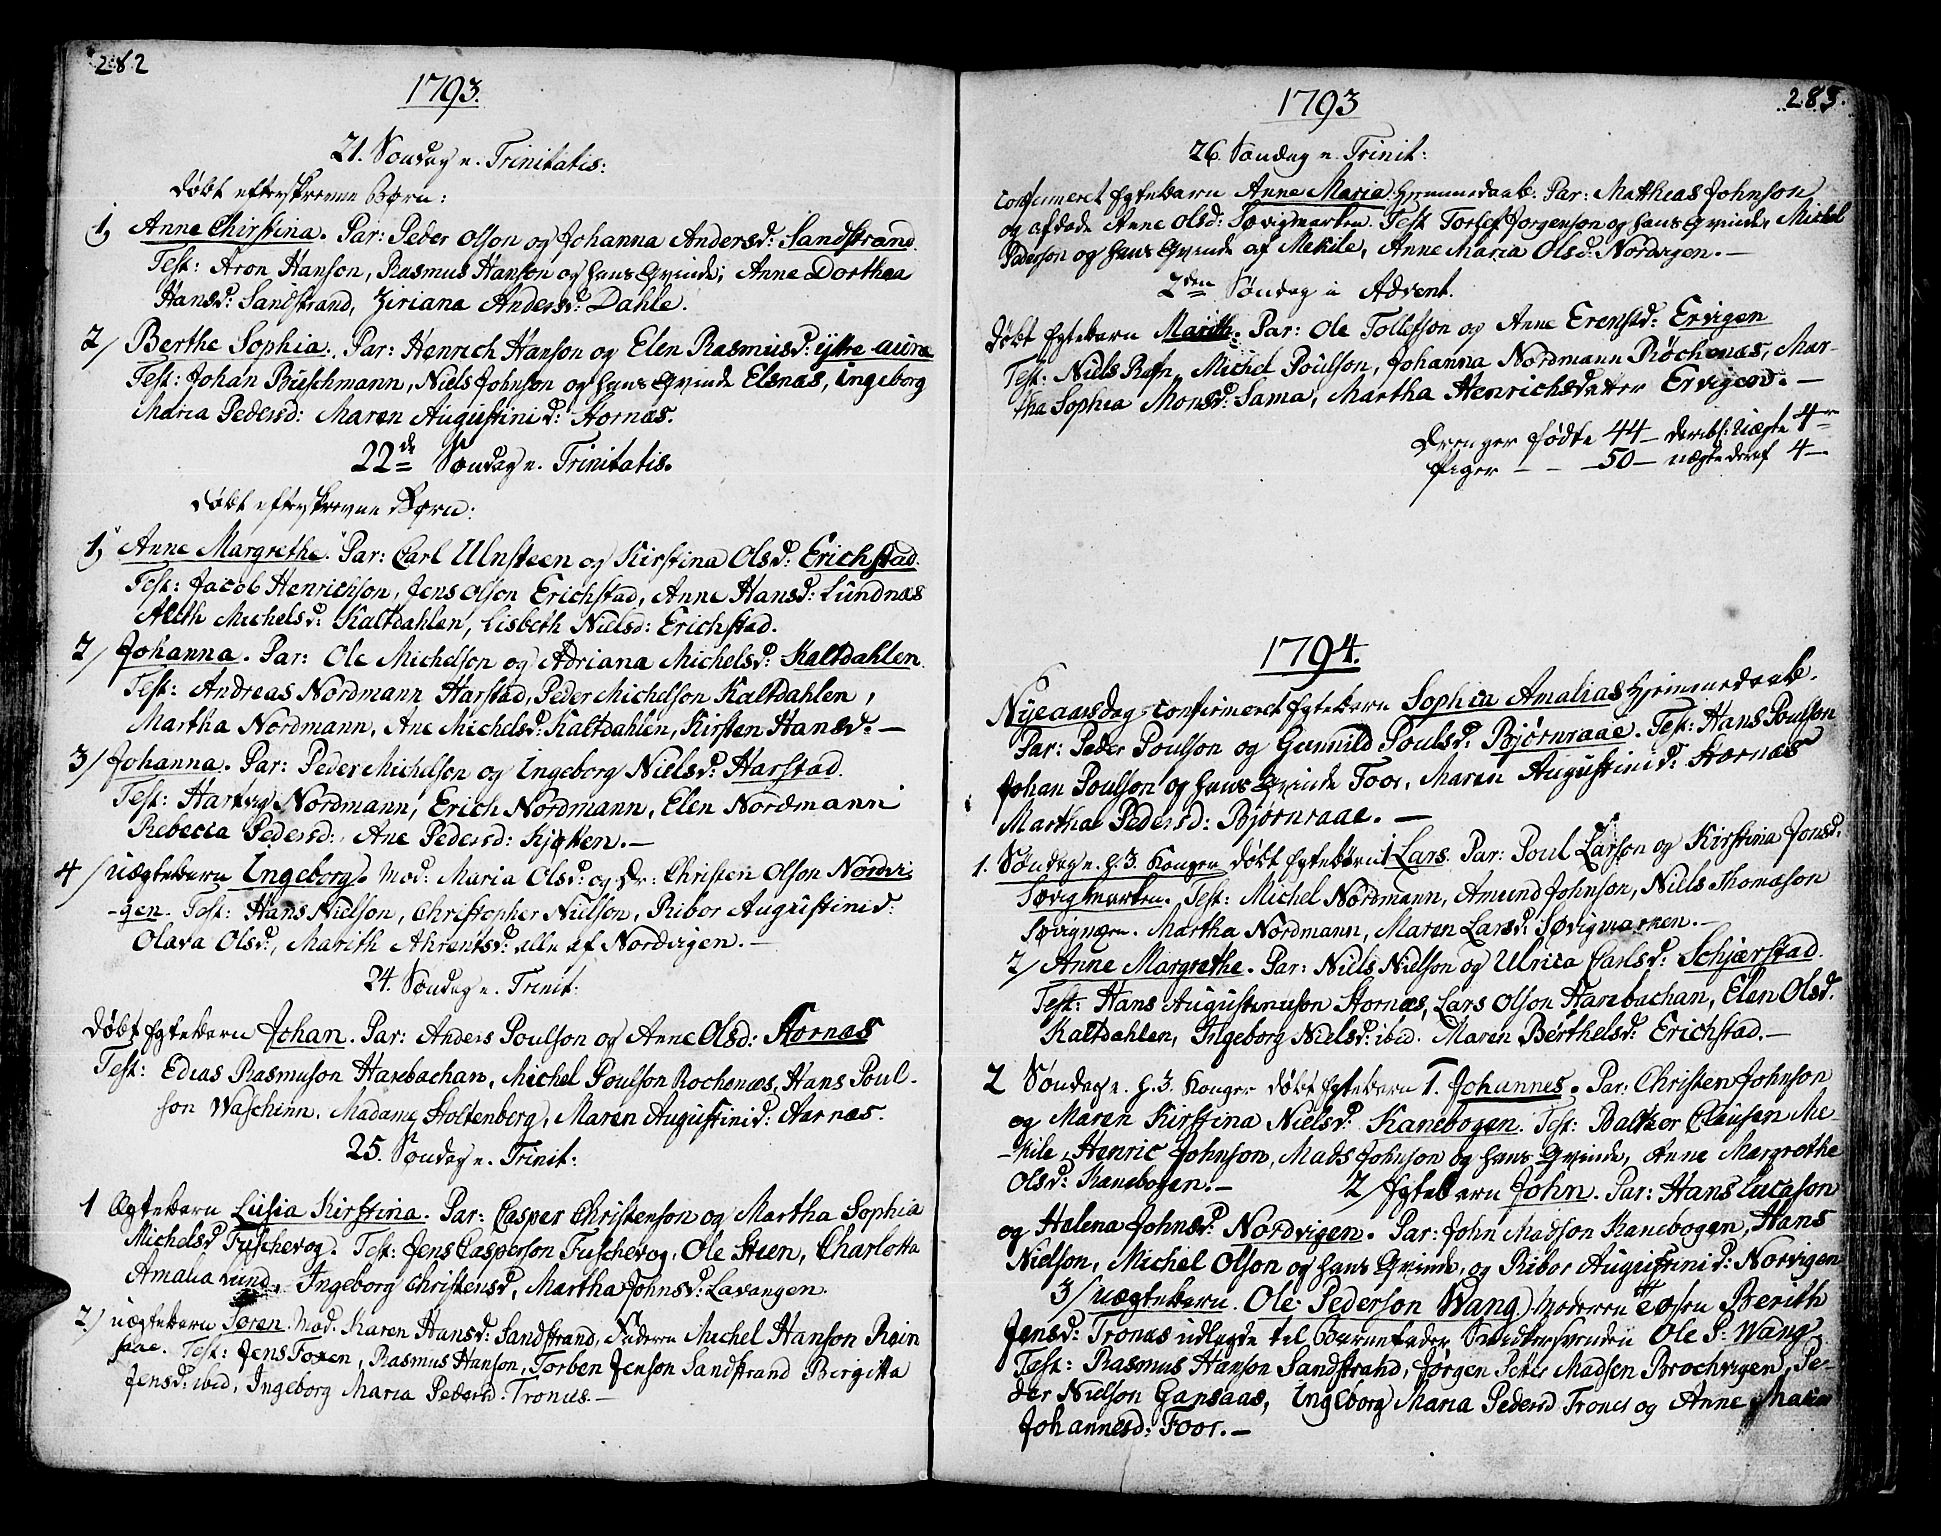 282
1793.
21. Søndag e. Trinitatis:
døbt efterskrevne Børn:
1, Anne Chirstina. Par: Peder Olson og Johanna Andersd: Sandstrand.
Test: Aron Hanson, Rasmus Hanson og hans Qvinde, Anne Dorthea
Hansd: Sandstrand, Ziriana Andersd: Dahle.
2/ Berthe Sophia. Par: Henrich Hanson og Elen Rasmusd: ytre aune
Test: Johan Buschmann, Niels Johnson og hans Qvinde Elsnæs, Ingeborg
Maria Pedersd: Maren Augustinid: Hornæs.
22de Søndag e. Trinitatis.
døbt efterskrevne Børn:
1, Anne Margrethe. Par: Carl Ulnsteen og Kirstina Olsd: Erichstad.
Test: Jacob Henrichson, Jens Olson Erichstad, Anne Hansd: Lundnæs
Alith Michelsd: Kaltdahlen, Lisbeth Nielsd: Erichstad.
2/ Johanna. Par: Ole Michelson og Adriana Michelsd: Kaltdahlen.
Test: Andreas Nordmann Harstad, Peder Michelson Kaltdahlen,
Martha Nordmann, Ane Michelsd: Kaltdahlen, Kirsten Hansd: —
3/ Johanna. Par: Peder Michelson og Ingeborg Nielsd: Harstad.
Test: Hartvig Nordmann, Erich Nordmann, Elen Nordmann
Rebecca Pedersd: Ane Pedersd: Kjøtten. —
4/ uægtebarn Ingeborg. Mod: Maria Olsd: og Christen Olson Nordvi
-gen. Test: Hans Nielson, Christopher Nielson, Ribor Augustinid:
Olava Olsd:, Marith Ahrentsd: alle af Nordvigen. —
24. Søndag e. Trinit:
Døbt Egtebarn Johan. Par: Anders Poulson og Anne Olsd: Stornæs
Test: Edias Rasmuson Harebachan, Michel Poulson Rochenæs, Hans Poul-
son Waschinn. Madame Stoltenberg, Maren Augustinid: Aarnæs.
25. Søndag e. Trinit:
1 Ægtebarn Lusia Kirstina. Par: Casper Christenson og Martha Sophia
Michelsd Fuschevog. Test: Jens Casperson Fuschevog, Ole Steen, Charlotta
Amalia Lund, Ingeborg Christensd, Martha Johnsd: Lavangen.
2/ uægtebarn Søren. Mod. Karen Hansd: Sandstrand, Faderen Michel Hanson Røin
saae. Test: Jens Foxen, Rasmus Hanson, Torben Jenson Sandstrand Birgitta
Jensd: ibid, Ingeborg Maria Pedersd: Tronæs —
1793
285.
26. Søndag e. Trinit:
Confirmeret Egtebarn Anne Maria hjemmedaab. Par: Matthias Johnson
og afdøde Anne Olsd: Søvigmarken. Test Torlef Jorgenson og hans Qvinde, Michel
Pederson og hans Qvinde af Mekile, Anne Maria Olsd: Nordvigen. —
2den Søndag i Advent.
Døbt Egtebarn Marith. Par: Ole Tollefson og Anne Erenstd: Ervigen
Test: Niels Rafn, Michel Poulson, Johanna Nordmann Røchenæs, Mar-
tha Sophia Monsd: Sama, Martha Henrichsdatter Ervigen. —
Drenger fødte 44 — deribl: Uægte 4 —
Piger — — 50 — uægte deraf 4 —
1794.
Nyeaarsdag confirmeret Egtebarn Sophia Amalias hjemmedaab.
Par: Peder Poulson og Gunnild Poulsd: Bjørnraae. Test: Hans Poulson
Johan Poulson og hans Qvinde Foor, Maren Augustinid: Hornæs
Martha Pedersd: Bjørnraae. —
1. Søndag e. H. 3. Konger døbt Egtebørn 1 Lars. Par: Poul Larson og Kirstina Jonsd:
Søvigmarken. Test: Michel Nordmann, Amund Johnson, Niels Thomason
Søvignæren. Martha Nordmann, Maren Larsd: Søvigmarken. —
2/ Anne Margrethe. Par: Niels Nielson og Ulrica Carlsd: Schjærstad.
Test: Hans Augustinuson Stornæs, Lars Olson Harebachan, Elen Olsd.
Kaltdahlen, Ingeborg Nielsd: ibid. Maren Berthelsd: Erichstad. —
2 Søndag e. H. 3. Konger døbt Egtebørn 1. Johannes. Par: Christen Johnson
og Maren Kirstina Nielsd: Kanebogen. Test: Baltzor Clausen Me-
-kile, Henric Johnson, Mads Johnson og hans Qvinde, Anne Margrethe
Olsd: Kanebogen. — 2/ Egtebarn John. Par: Hans Lucason
og Halena Johnsd: Nordvigen. Par: John Madson Kanebogen, Hans
Nielson, Michel Olson og hans Qvinde, og Ribor Augustinid: Norvigen
3/ Uægtebarn. Ole Pederson Wang, Moderen tøsen Berith
Jensd: Tronæs udlagde til Barnefader Ole P. Wang
Test: Rasmus Hanson Sandstrand, Jørgen Peter Madsen Brochvigen, Pe-
der Nielson Gansaas, Ingeborg Maria Pedersd Trones og Anne Maria
Johannesd: Foor. —